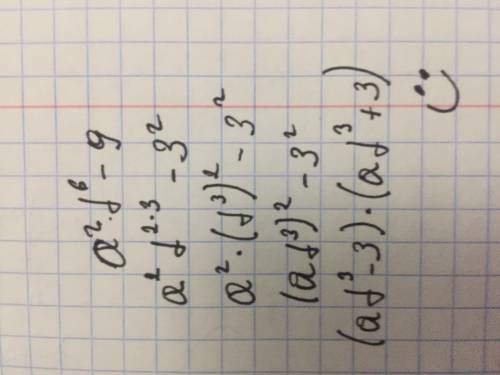 a²·b⁶ - 9
a² b²·³ - 3²
a²·(b³)² - 3²
(ab³)² - 3²
(ab³-3)·(ab³+3)